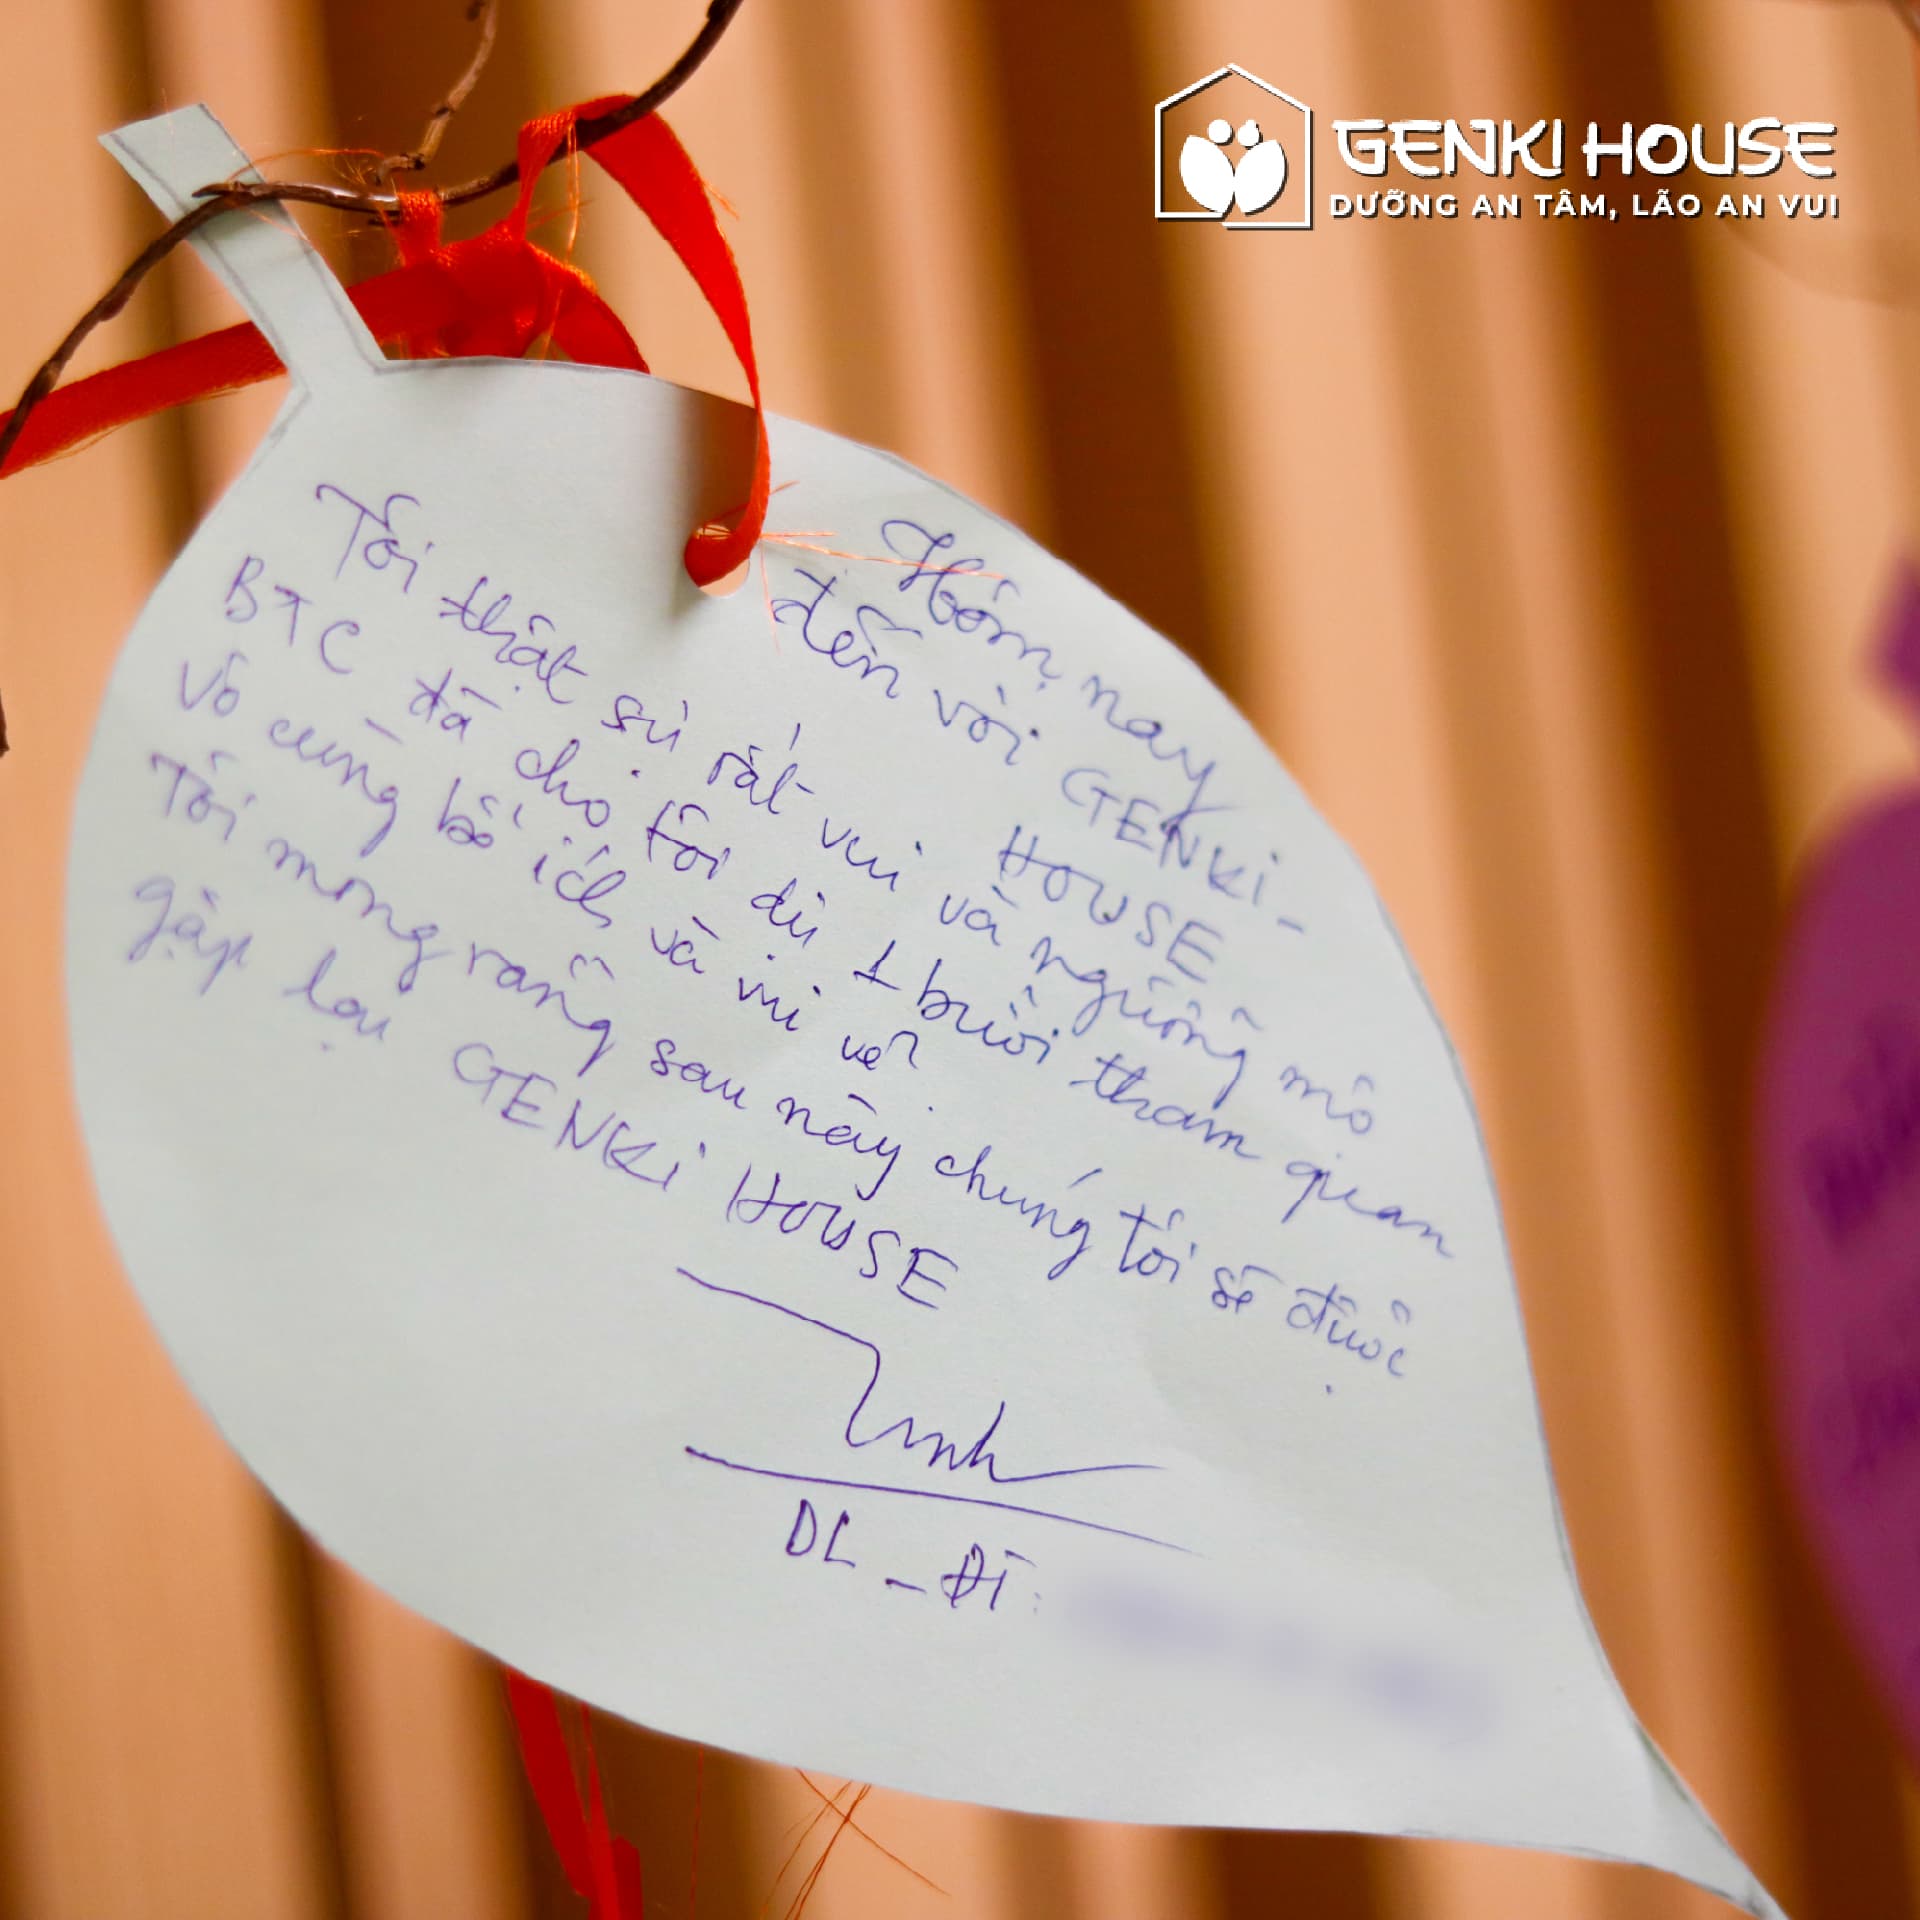 GENKI HOUSE
DƯỠNG AN TÂM, LÃO AN VUI
Hôm nay
đến với GENKI-
HOUSE
Tôi thật sự rất vui và ngưỡng mộ
BTC đã cho tôi dự 1 buổi tham quan
vô cùng bổ ích và vui vẻ.
Tôi mong rằng sau này chúng tôi sẽ được
gặp lại GENKI HOUSE
DL - ĐT: